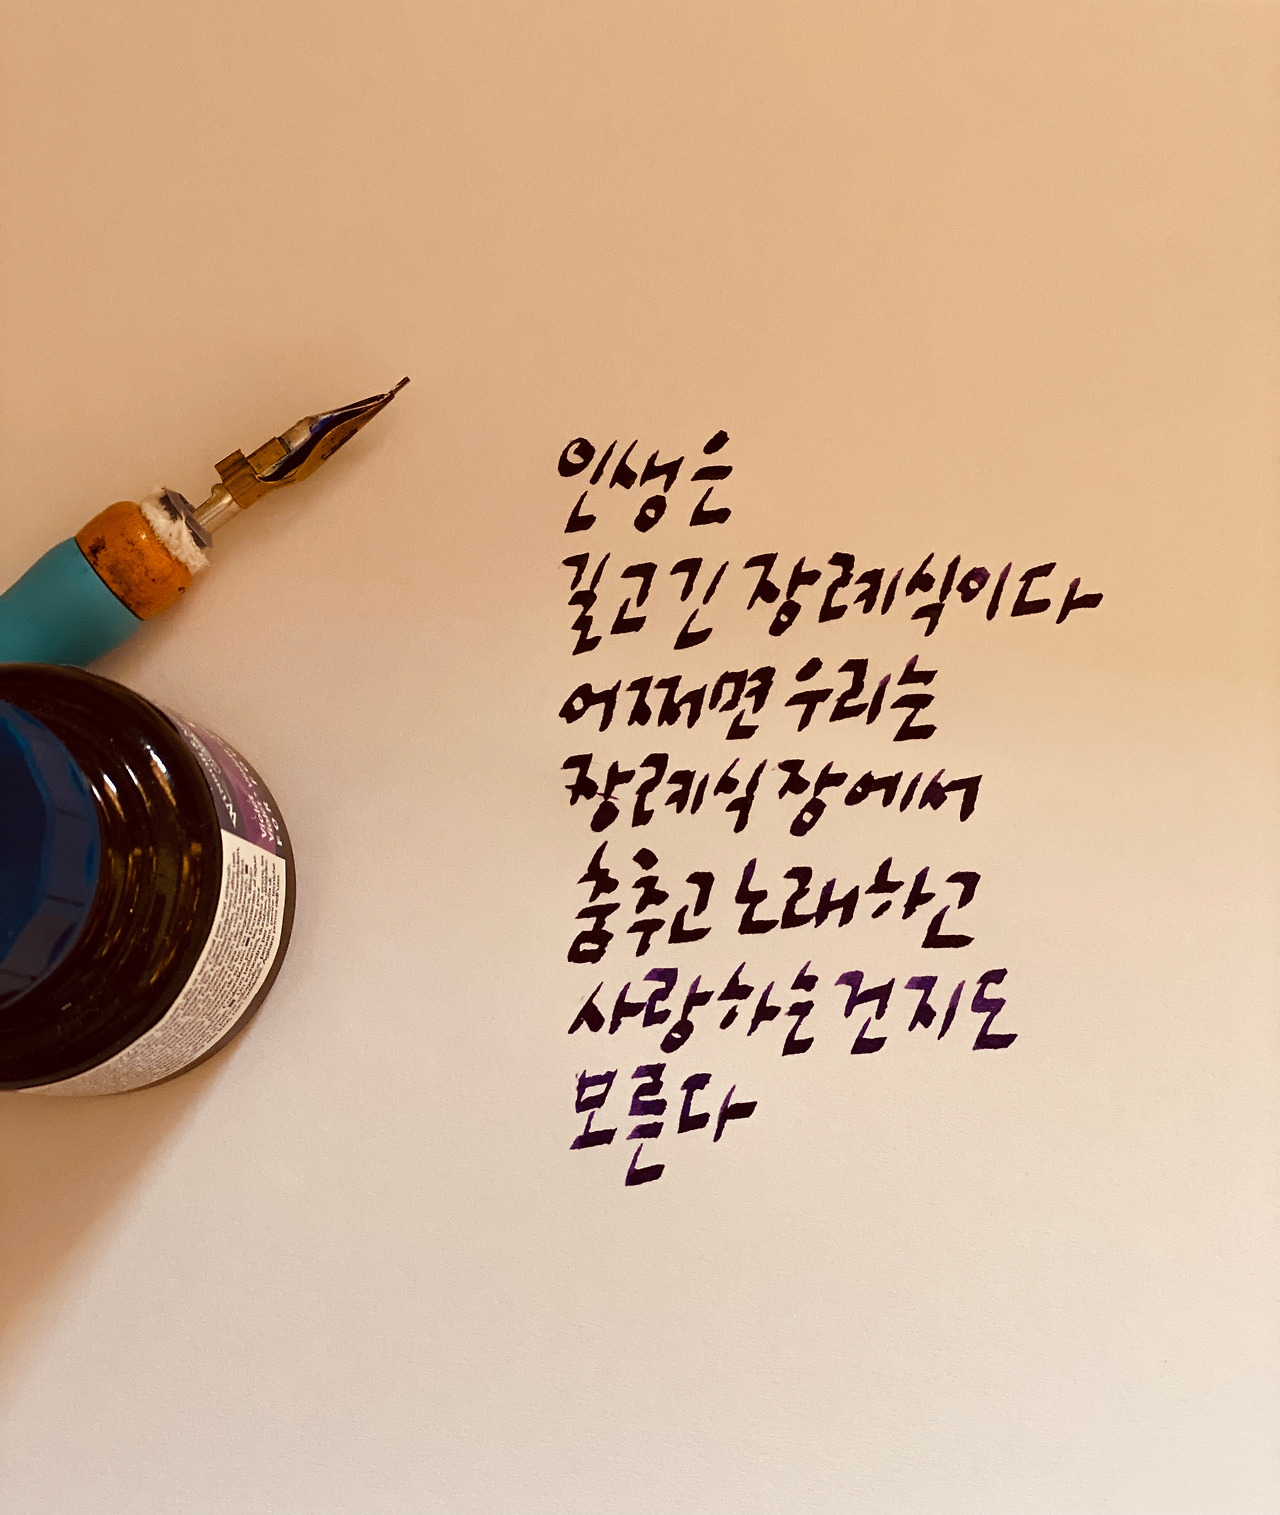 인생은
길고 긴 장례식이다
어쩌면 우리는
장례식장에서
춤추고 노래하고
사랑하는 건지도
모른다